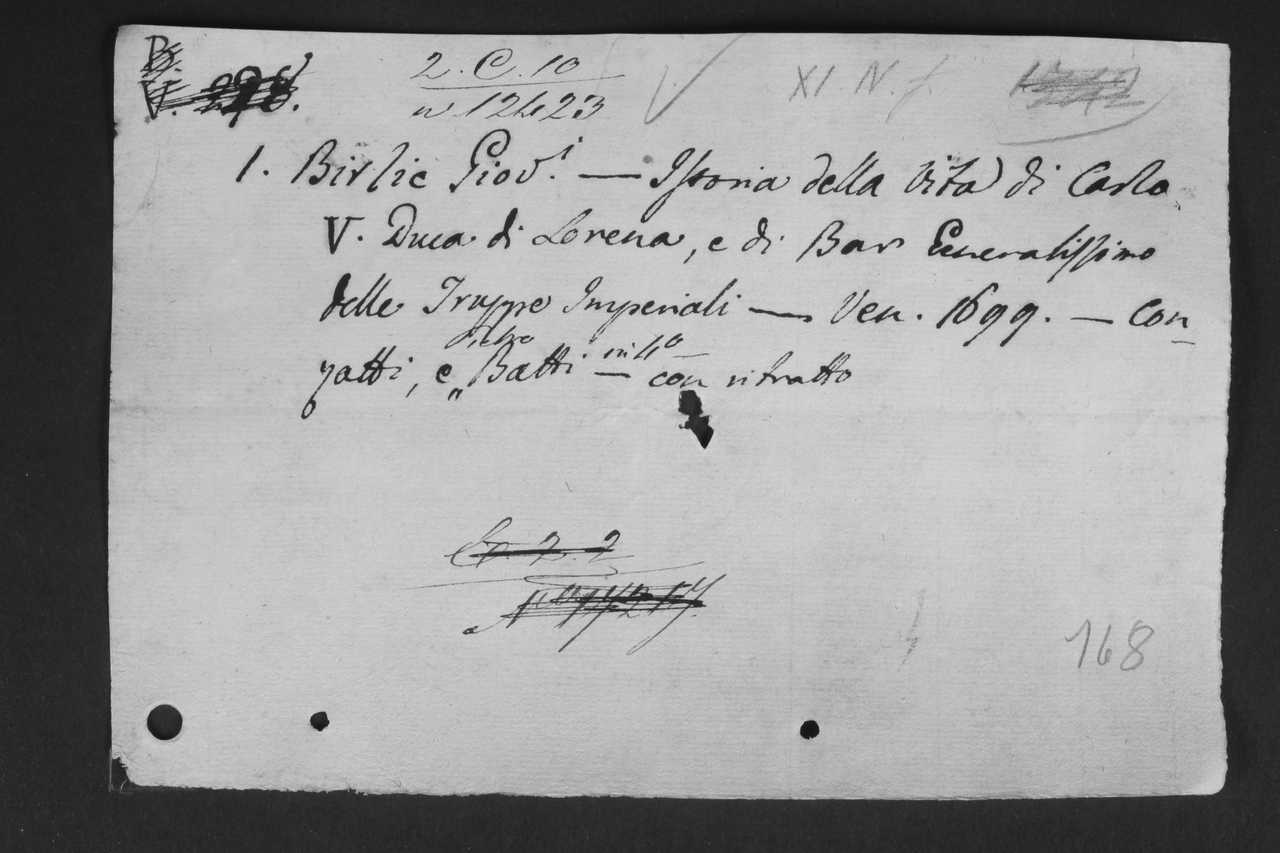 B.
V. 298.
2. C. 10
n 12423
XI. N. f.
1. Birlic Giov.i — Istoria della Vita di Carlo
V. Duca di Lorena, e di Bar Generalissimo
delle Truppe Imperiali — Ven. 1699. — Con
zatti, e Pietro Batti — in 4o con ritratto
2. 2
168